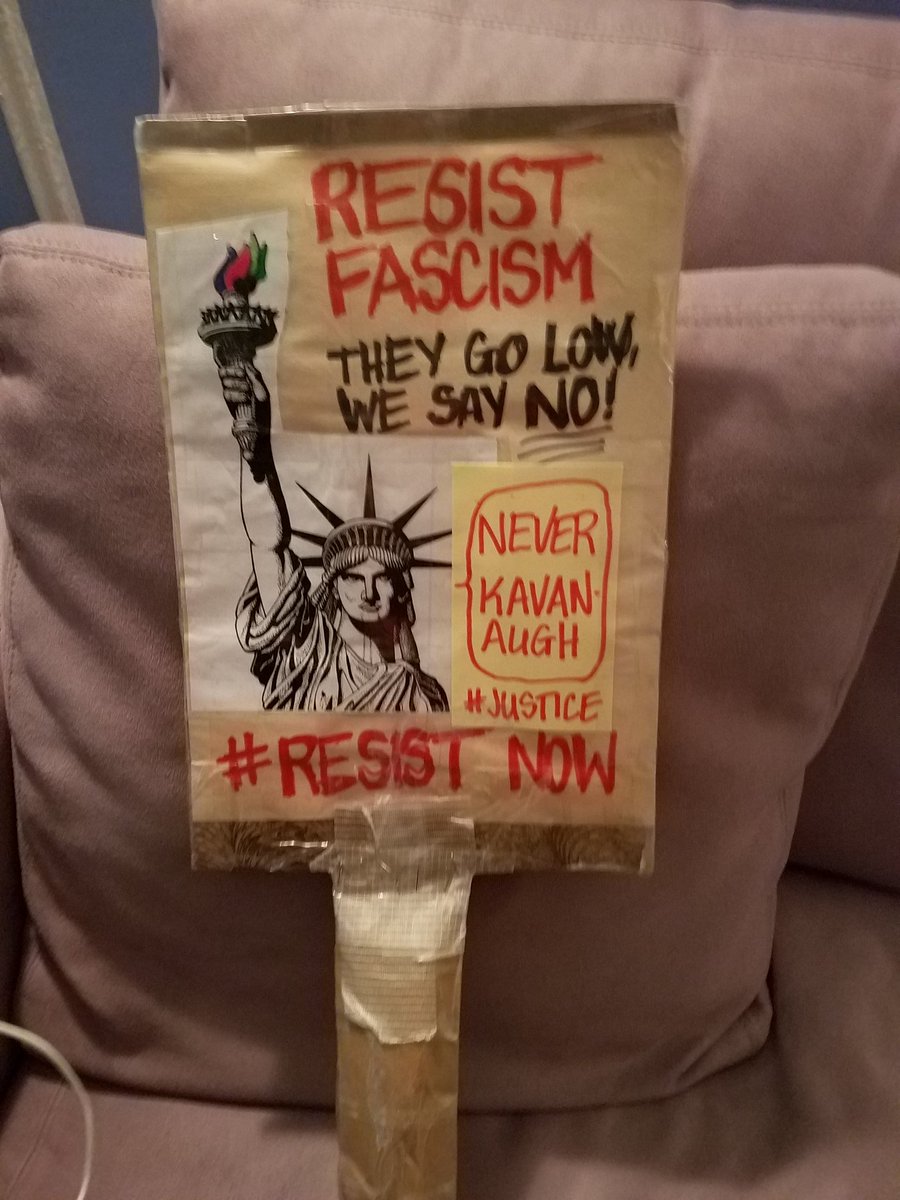 RESIST
FASCISM
THEY GO LOW,
WE SAY NO!
NEVER
KAVAN-
AUGH
#JUSTICE
#RESIST NOW